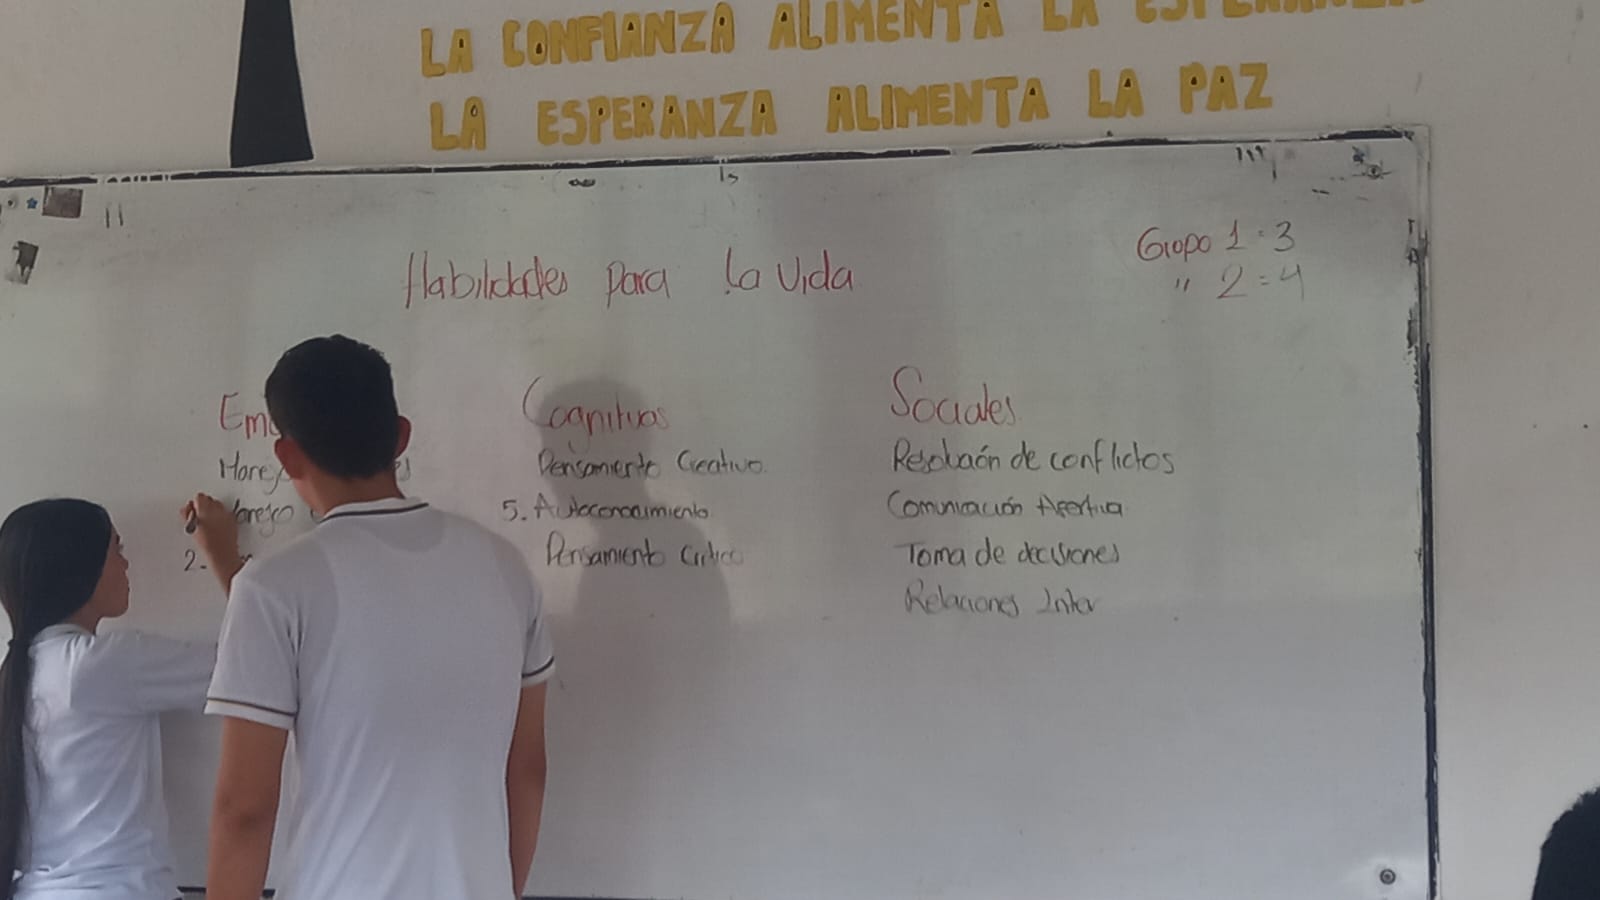 LA CONFIANZA ALIMENTA LA
LA ESPERANZA ALIMENTA LA PAZ
Grupo 1 = 3
" 2 = 4
Habilidades para la Vida
Cognitivas
Pensamiento Creativo.
5. Autoconocimiento
Pensamiento Critico
Sociales
Resolución de conflictos
Comunicación Asertiva
Toma de decisiones
Relaciones Inter
2.